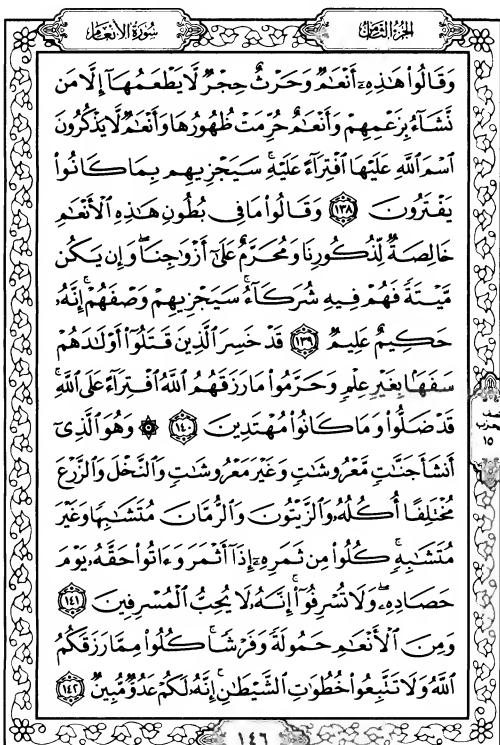 سُورَةُ الأَنْعَامِ
الجُزْءُ الثَّامِنُ
وَقَالُوا۟ هَـٰذِهِۦٓ أَنْعَـٰمٌ وَحَرْثٌ حِجْرٌ لَّا يَطْعَمُهَآ إِلَّا مَن
نَّشَآءُ بِزَعْمِهِمْ وَأَنْعَـٰمٌ حُرِّمَتْ ظُهُورُهَا وَأَنْعَـٰمٌ لَّا يَذْكُرُونَ
ٱسْمَ ٱللَّهِ عَلَيْهَا ٱفْتِرَآءً عَلَيْهِ ۚ سَيَجْزِيهِم بِمَا كَانُوا۟
يَفْتَرُونَ ١٣٨ وَقَالُوا۟ مَا فِى بُطُونِ هَـٰذِهِ ٱلْأَنْعَـٰمِ
خَالِصَةٌ لِّذُكُورِنَا وَمُحَرَّمٌ عَلَىٰٓ أَزْوَٰجِنَا ۖ وَإِن يَكُن
مَّيْتَةً فَهُمْ فِيهِ شُرَكَآءُ ۚ سَيَجْزِيهِمْ وَصْفَهُمْ ۚ إِنَّهُۥ
حَكِيمٌ عَلِيمٌ ١٣٩ قَدْ خَسِرَ ٱلَّذِينَ قَتَلُوٓا۟ أَوْلَـٰدَهُمْ
سَفَهًۢا بِغَيْرِ عِلْمٍ وَحَرَّمُوا۟ مَا رَزَقَهُمُ ٱللَّهُ ٱفْتِرَآءً عَلَى ٱللَّهِ ۚ
قَدْ ضَلُّوا۟ وَمَا كَانُوا۟ مُهْتَدِينَ ١٤٠ ۞ وَهُوَ ٱلَّذِىٓ
أَنشَأَ جَنَّـٰتٍ مَّعْرُوشَـٰتٍ وَغَيْرَ مَعْرُوشَـٰتٍ وَٱلنَّخْلَ وَٱلزَّرْعَ
مُخْتَلِفًا أُكُلُهُۥ وَٱلزَّيْتُونَ وَٱلرُّمَّانَ مُتَشَـٰبِهًا وَغَيْرَ
مُتَشَـٰبِهٍ ۚ كُلُوا۟ مِن ثَمَرِهِۦٓ إِذَآ أَثْمَرَ وَءَاتُوا۟ حَقَّهُۥ يَوْمَ
حَصَادِهِۦ ۖ وَلَا تُسْرِفُوٓا۟ ۚ إِنَّهُۥ لَا يُحِبُّ ٱلْمُسْرِفِينَ ١٤١
وَمِنَ ٱلْأَنْعَـٰمِ حَمُولَةً وَفَرْشًا ۚ كُلُوا۟ مِمَّا رَزَقَكُمُ
ٱللَّهُ وَلَا تَتَّبِعُوا۟ خُطُوَٰتِ ٱلشَّيْطَـٰنِ ۚ إِنَّهُۥ لَكُمْ عَدُوٌّ مُّبِينٌ ١٤٢
١٥
١٤٦